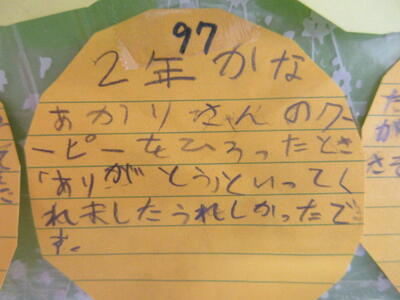 97
2年かな
あかりさんのクー
ーピーをひろったとき
「ありがとう」といってく
れましたうれしかったで
す。